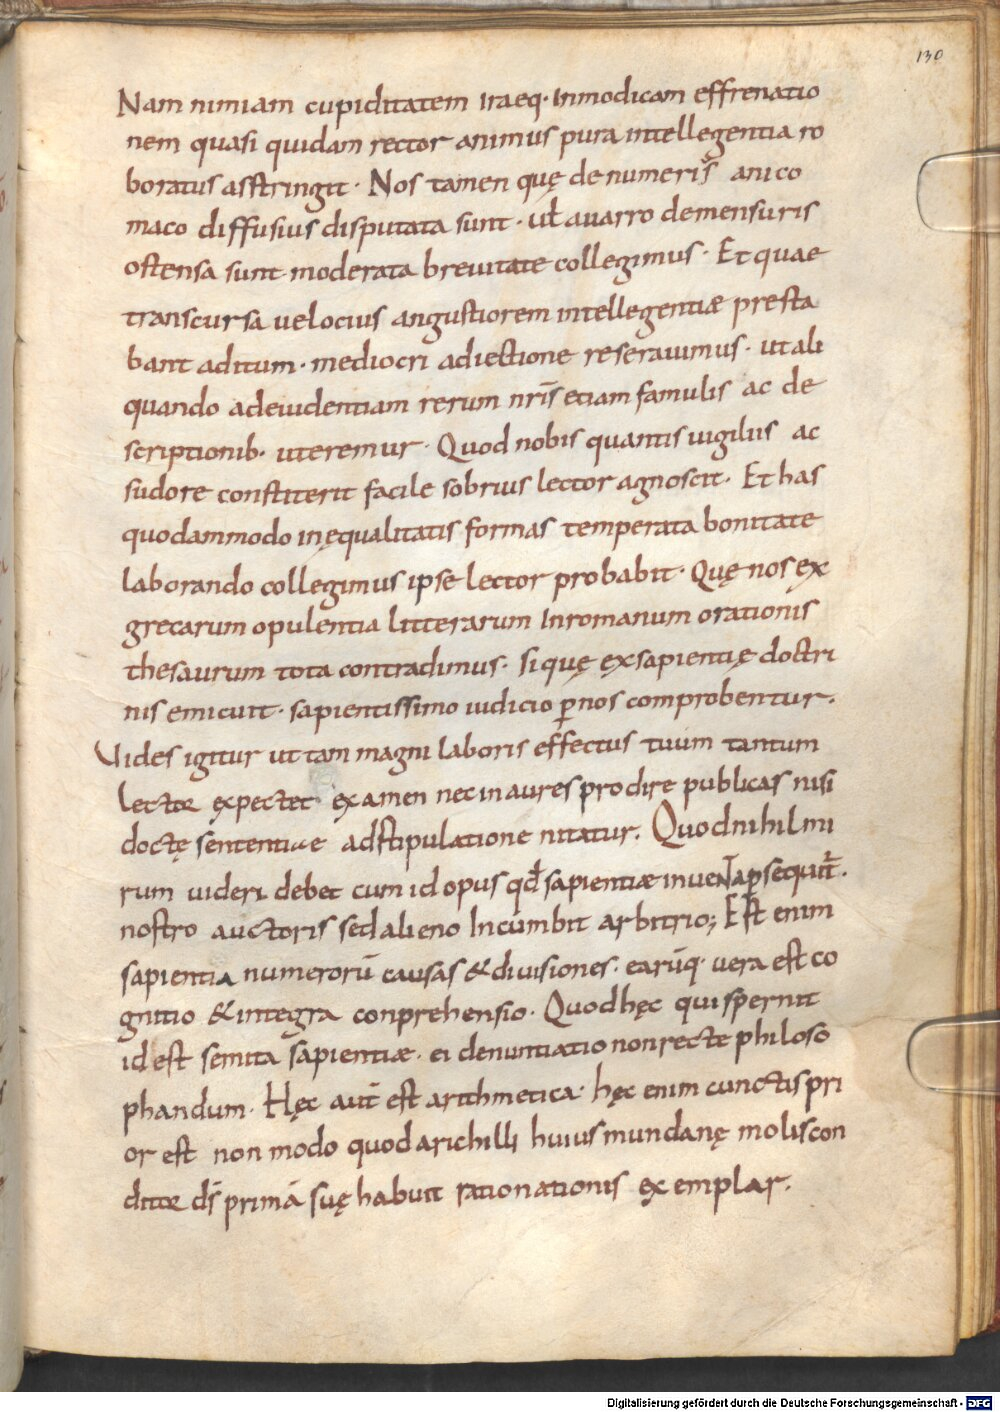 130
Nam nimiam cupiditatem iraeq· inmodicam effrenatio
nem quasi quidam rector animus pura intellegentia ro
boratus asstringit· Nos tamen quę de numeris anico
maco diffusius disputata sunt· ut auarro demensuris
ostensa sunt moderata breuitate collegimus· Et quae
transcursa uelocius angustiorem intellegentiæ presta
bant aditum· mediocri adiectione reserauimus· ut ali
quando adeuidentiam rerum nr̄is etiam famulis ac de
scriptionib· uteremur· Quod nobis quantis uigiliis ac
sudore constiterit facile sobrius lector agnoscit· Et has
quodammodo inęqualitatis formas temperata bonitate
laborando collegimus ipse lector probabit· Quę nos ex
grecarum opulentia litterarum inromanum orationis
thesaurum tota contradimus· si quę exsapientię doctri
nis emicuit· sapientissimo iudicio ꝑnos comprobentur·
Uides igitur ut tam magni laboris effectus tuum tantum
lector expectet examen nec in aures prodire publicas nisi
doctę sententiae adstipulatione nitatur. Quod nihil mi
rum uideri debet cum id opus qđ sapientiæ inuenta ꝑsequit̄·
nostro auctoris sed alieno Incumbit arbitrio; Est enim
sapientia numerorū causas & diuisiones· earūq· uera est co
gnitio & integra conprehensio· Quod hęc qui spernit
id est semita sapientiæ· ei denuntiatio non recte philoso
phandum· Hęc aut̄ est arithmetica· hęc enim cunctis pri
or est non modo quod arichilli huius mundanę molis con
ditor d̄s primā suę habuit rationationis exemplar.
Digitalisierung gefördert durch die Deutsche Forschungsgemeinschaft - DFG